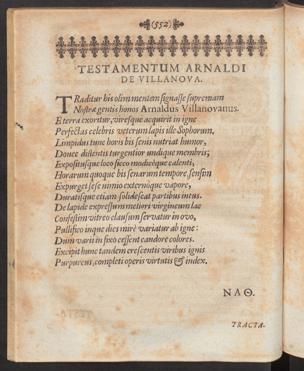 (552)
TESTAMENTUM ARNALDI
DE VILLANOVA.
TRaditur his olim mentem signasse supremam
Nostræ gentis honos Arnaldus Villanovanus.
E terra exoritur, viresque acquirit in igne
Perfectas celebris veterum lapis ille Sophorum,
Limpidus tunc horis bis senis nutriat humor,
Donec distentis turgentior undique membris;
Expositusque loco sicco modicèque calenti,
Horarum quoque bis senarum tempore, sensim
Expurget sese nimio externóque vapore,
Duratisque etiam solidescat partibus intus.
De lapide expressum meliori virgineum lac
Confestim vitreo clausum servatur in ovo,
Pullifico inque dies mirè variatur ab igne:
Dum varii in fixo cessent candore colores.
Excipit hunc tandem crescentis viribus ignis
Purpureus, completi operis virtutis & index.
ΝΑΘ.
TRACTA-